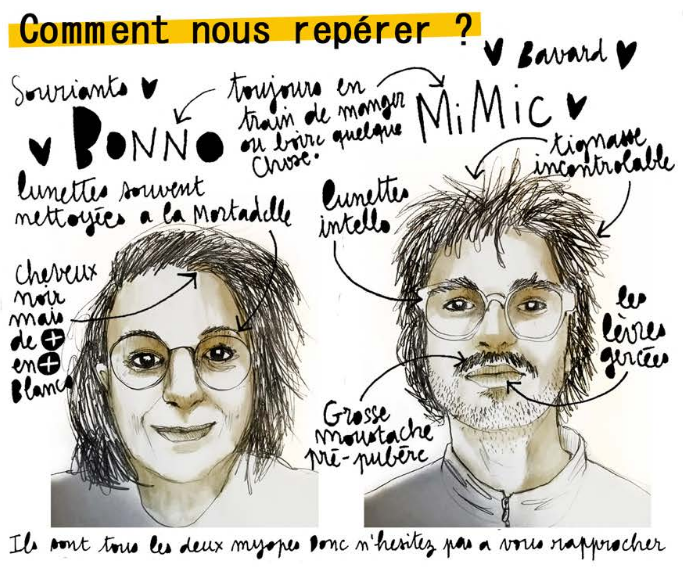 Comment nous repérer ?
Souriants
toujours en
train de manger
ou boire quelque
chose.
Bavard
BONNO
MiMic
lunettes souvent
nettoyées a la Mortadelle
lunettes
intello
tignasse
incontrolable
cheveux
noir
mais
de +
en +
Blancs
les
lèvres
gercées
Grosse
moustache
pré-pubère
Ils sont tous les deux myopes Donc n'hesitez pas a vous rapprocher